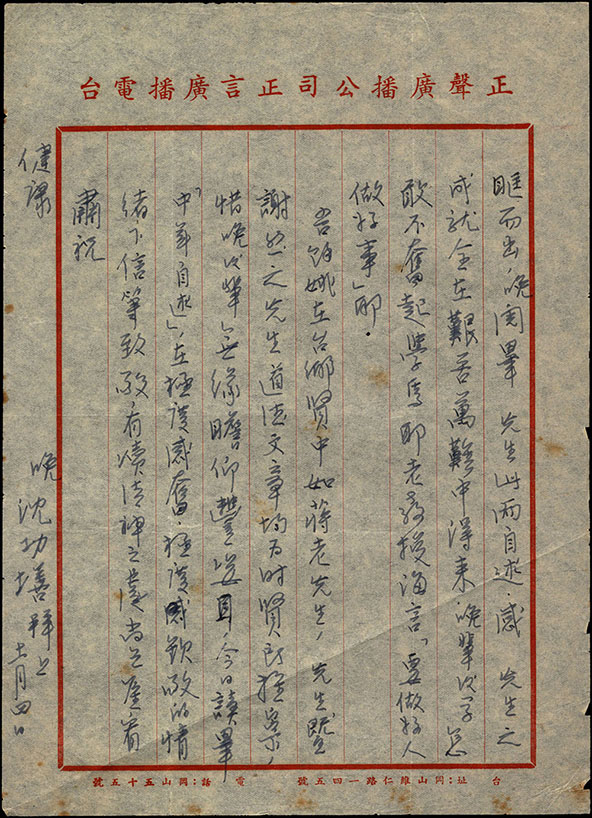 正聲廣播公司正言廣播電台
眶而出,晚閱畢 先生此兩自述,感 先生之
成就全在艱苦萬難中得來,晚輩後學怎
敢不奮起學焉耶老 言「要做好人
做好事」耶.
吾餘姚在台鄉賢中如蔣老先生, 先生暨
謝然之先生道德文章均為時賢所推崇,
惜晚後輩無緣瞻仰豐姿,今日讀畢
「中年自述」,在極度感奮,極度感欽敬的情
緒下信筆致敬,有瀆清神之處尚乞 宥
肅祝
健康
晚 沈功 拜上 十一月四日
台 址:岡山維仁路一四五號 電 話:岡山五十五號